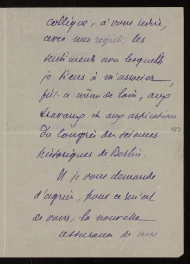 collègue, à vous redire,
avec mes regrets, les
sentiments avec lesquels
je tiens à m'associer,
fût-ce même de loin, aux
travaux et aux aspirations
du Congrès des sciences
historiques de Berlin.
Et je vous demande
d'agréer, pour ce qui est
de vous, la nouvelle
assurance de mes